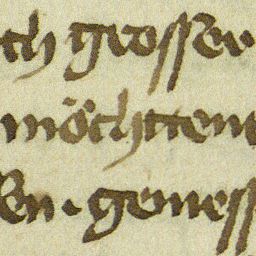 ch grosser
möchtten
en · geness